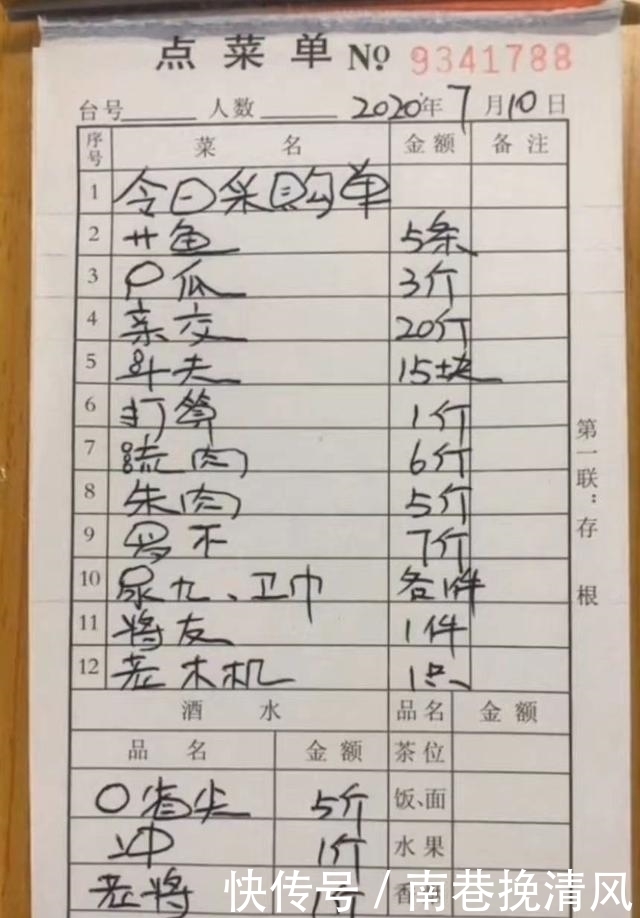 点菜单 No 9341788
台号 人数 2020年7月10日
序号 菜名 金额 备注
1 今日采购单
2 艹鱼 5条
3 瓜 3斤
4 亲交 20斤
5 夫 15块
6 打算 1斤
7 肉 6斤
8 朱肉 5斤
9 罗不 7斤
10 尿九、卫巾 各1件
11 将友 1件
12 老木机 1只
第一联：存根
酒水 品名 金额
品名 金额 茶位
〇省尖 5斤 饭、面
冲 1斤 水果
老将 1斤
快传号/南巷挽清风